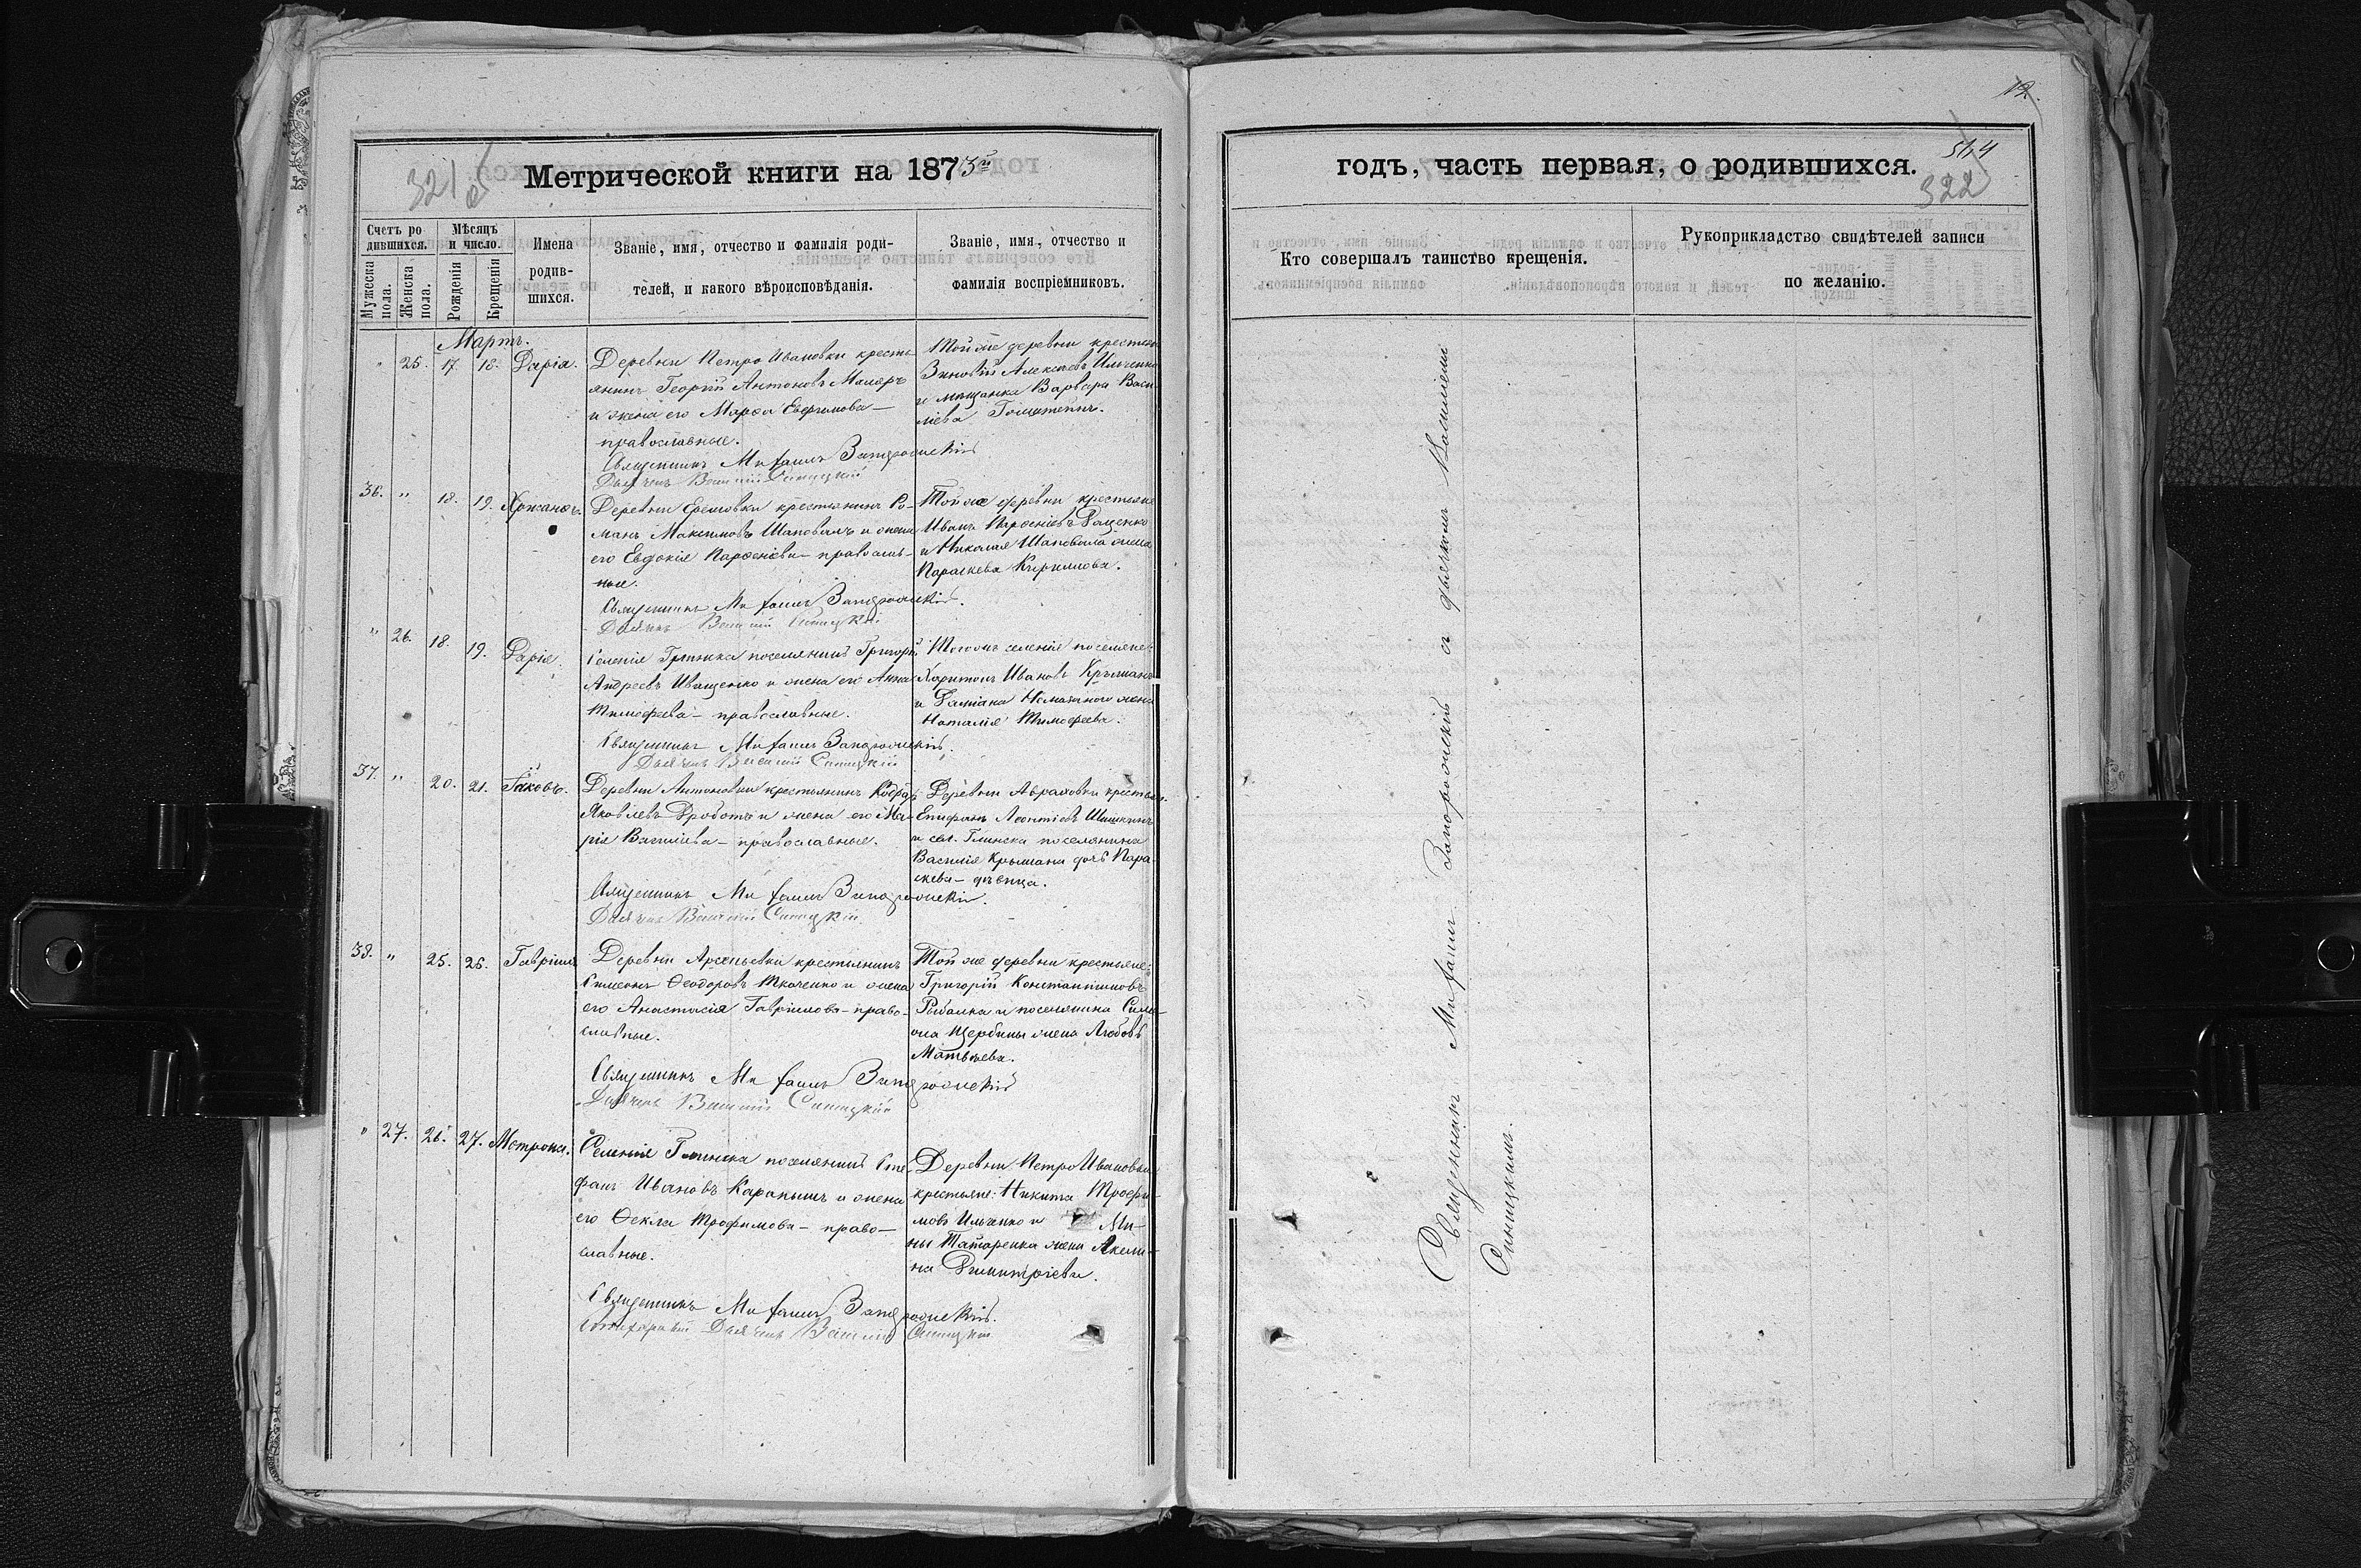 321 об
Метрической книги на 1873й
Счетъ ро
дившихся.
Мѣсяцъ
и число.
Мужеска
пола.
Женска
пола.
Рожденія
Крещенія
Имена
родив-
шихся.
Званіе, имя, отчество и фамилія роди-
телей, и какого вѣроисповѣданія.
Званіе, имя, отчество и
фамилія воспріемниковъ.
Мартъ.
" 25. 17. 18. Дарія.
Деревни Петро Ивановки кресть-
янинъ Георгій Антоновъ Маляръ
и жена его Марѳа Евфимова —
православные.
Той же деревни крестьян.
Зиновій Алексѣевъ Ильченко
и мѣщанка Варвара Васи-
ліева
Священникъ Михаилъ Запорожскій
Дьячекъ Василій Синицкій
36. " 18. 19.
Деревни крестьянинъ Ро-
манъ Максимовъ Шаповалъ и жена
его Евдокія Парѳеніева — православ-
ные.
Той же деревни крестьяне
Иванъ Парѳеніевъ
и Николая Шаповала жена
Параскева Кириллова.
Священникъ Михаилъ Запорожскій.
Дьячекъ Василій Синицкій
" 26. 18. 19. Дарія.
Селенія Глинска поселянинъ Григорій
Андреевъ Иващенко и жена его Анна
Тимофеева — православные.
Тогожъ селенія поселяне:
Харитонъ Ивановъ
и жена
Наталія Тимофеева.
Священникъ Михаилъ Запорожскій.
Дьячекъ Василій Синицкій
37. " 20. 21. Іаковъ.
Деревни Антоновки крестьянинъ
Яковлевъ Дроботъ и жена его Ма-
рія Василіева — православные.
Деревни Аврамовки крестьян.
Епифанъ Леонтіевъ Шишкинъ
и сел. Глинска поселянина
Василія Крымана дочь Пара-
скева — дѣвица.
Священникъ Михаилъ Запорожскій.
Дьячекъ Василій Синицкій
38. " 25. 26. Гавріилъ
Деревни Арсеньевки крестьянинъ
Симеонъ Ѳеодоровъ Ткаченко и жена
его Анастасія Гавріилова — право-
славные.
Той же деревни крестьяне:
Григорій Константиновъ
Рыбалка и поселянина Симе-
она Щербины жена Любовь
Матвѣева.
Священникъ Михаилъ Запорожскій
Дьячекъ Василій Синицкій
" 27. 26. 27. Матрона.
Селенія Глинска поселянинъ Сте-
фанъ Ивановъ и жена
его Ѳекла Трофимова — право-
славные.
Деревни Петро Ивановки
крестьяне: Никита Трофи-
мовъ Ильченко и Ми-
ны Татаренка жена Акили-
на Димитріева.
Священникъ Михаилъ Запорожскій.
Дьячекъ Василій Синицкій
12.
годъ, часть первая, о родившихся.
322
Кто совершалъ таинство крещенія.
Рукоприкладство свидѣтелей записи
по желанію.
Священникъ Михаилъ Запорожскій съ дьячкомъ Василіемъ
Синицкимъ.